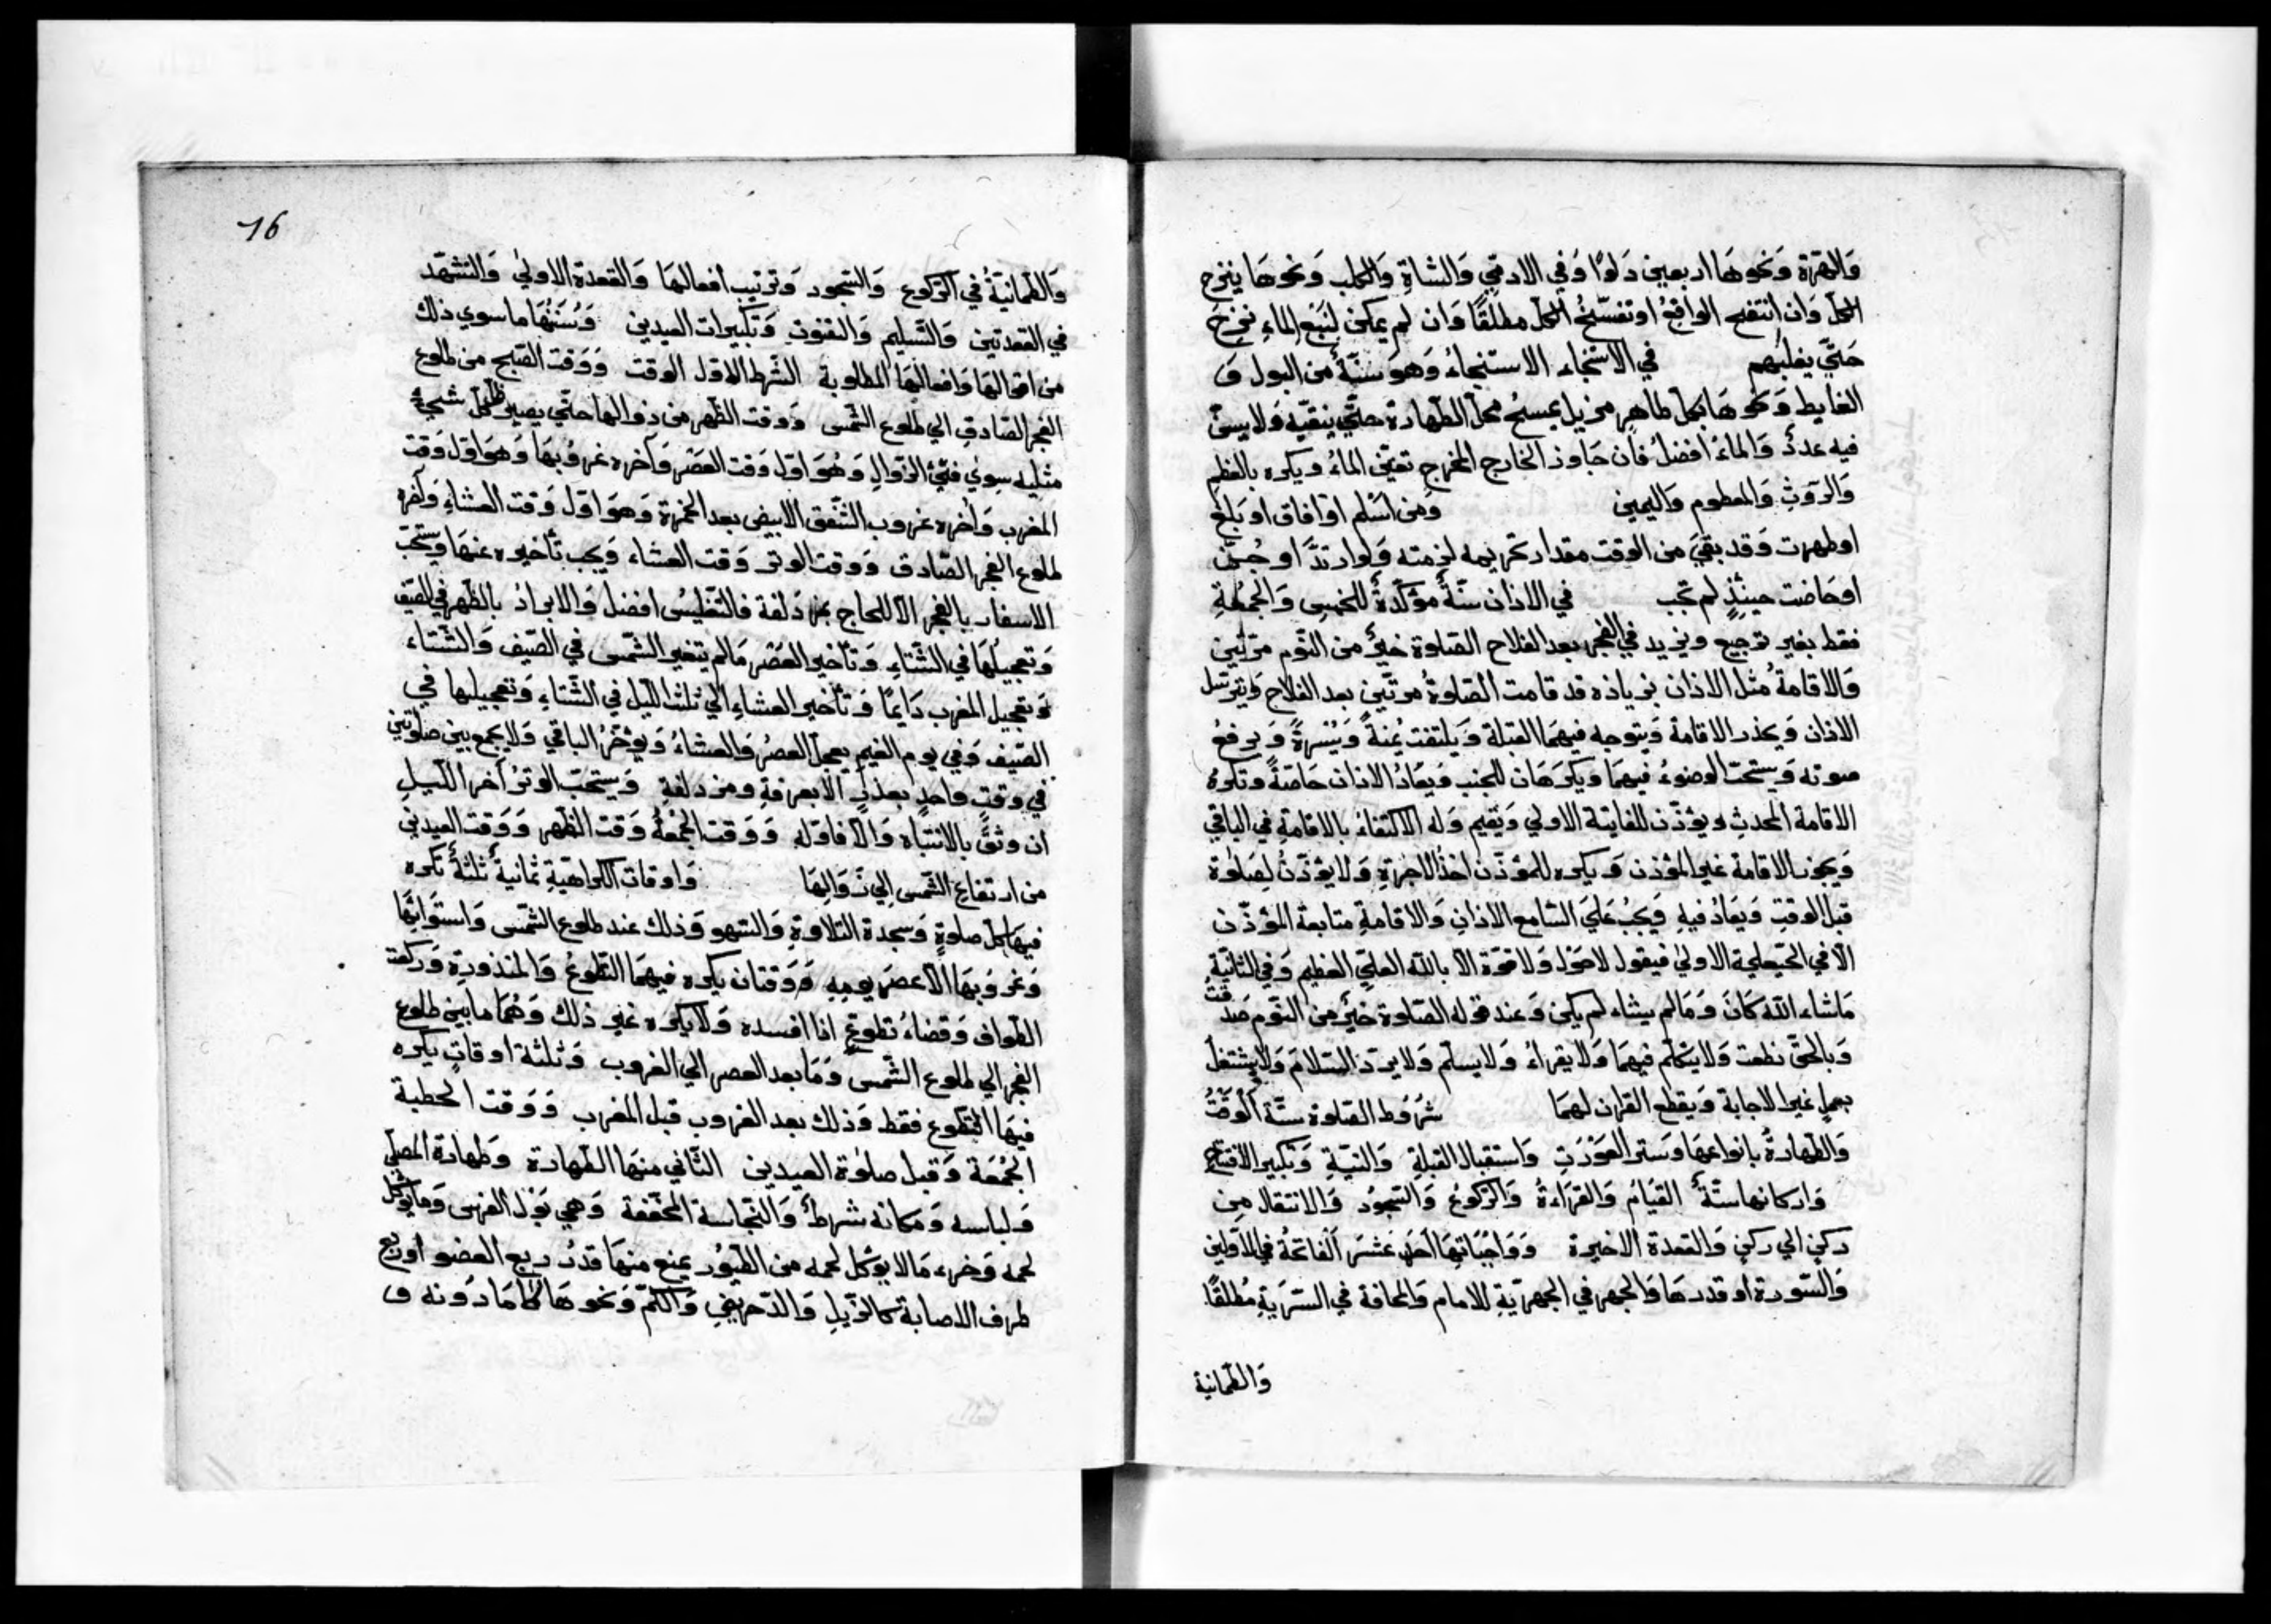 والهرة ونحوها اربعين دلوا وفي الادمي والشاة والكلب ونحوها ينزح
الكل وان انتفخ الواقع او تفسخ الكل مطلقا وان لم يمكن لنبع الماء نزح
حتي يغلبهم في الاستنجاء الاستنجاء وهو سنة من البول و
الغايط ونحوها بكل طاهر مزيل يمسح محل الطهارة حتي ينقيه ولا يسن
فيه عدد والماء افضل فان جاوز الخارج المخرج تعين الماء ويكره بالعظم
والروث والمطعوم واليمين ومن اسلم او افاق او بلغ
او طهرت وقد بقي من الوقت مقدار تحريمه لزمته ولو ارتد او جن
او حاضت حينئذ لم تجب في الاذان سنة مؤكدة للخمس والجمعة
فقط بغير ترجيع ويزيد في الفجر بعد الفلاح الصلوة خير من النوم مرتين
والاقامة مثل الاذان بزيادة قد قامت الصلوة مرتين بعد الفلاح ويترسل
الاذان ويحدر الاقامة ويتوجه فيهما القبلة ويلتفت يمنة ويسرة ويرفع
صوته ويستحب الوضوء فيهما ويكرهان للجنب ويعاد الاذان خاصة وتكره
الاقامة المحدث ويؤذن للفايتة الاولي ويقيم وله الاكتفاء بالاقامة في الباقي
ويجوز الاقامة غير المؤذن ويكره للمؤذن اخذ الاجرة ولا يؤذن لصلوة
قبل الوقت ويعاد فيه ويجب علي السامع الاذان والاقامة متابعة المؤذن
الا في الحيعلة الاولي فيقول لا حول ولا قوة الا بالله العلي العظيم وفي الثانية
ماشاء الله كان وما لم يشاء لم يكن وعند قوله الصلوة خير من النوم صدقت
وبالحق نطقت ولا يتكلم فيهما ولا يقراء ولا يسلم ولا يرد السلام ولا يشتغل
بعمل غير الاجابة ويقطع القران لهما شروط الصلوة ستة الوقت
والطهارة بانواعها وستر العورت واستقبال القبلة والنية وتكبير الافتتاح
واركانها ستة القيام والقراءة والركوع والسجود والانتقال من
ركن الي ركن والقعدة الاخيرة وواجباتها احد عشر الفاتحة في الاوليين
والسورة او قدرها والجهر في الجهرية للامام والمخافة في السرية مطلقا
والطمانية
16
والطمانية في الركوع والسجود وترتيب افعالها والقعدة الاولي والتشهد
في القعدتين والتسليم والقنوت وتكبيرات العيدين وسننها ما سوي ذلك
من اقوالها وافعالها المطلوبة الشرط الاول الوقت ووقت الصبح من طلوع
الفجر الصادق الي طلوع الشمس ووقت الظهر من زوالها حتي يصير ظل كل شيء
مثليه سوي فيئ الزوال وهو اول وقت العصر وآخره غروبها وهو اول وقت
المغرب واخره غروب الشفق الابيض بعد الحمرة وهو اول وقت العشاء وآخره
طلوع الفجر الصادق ووقت الوتر وقت العشاء ويجب تأخيره عنها ويستحب
الاسفار بالفجر الا للحاج بمزدلفة فالتغليس افضل والابراد بالظهر في الصيف
وتعجيلها في الشتاء وتأخير العصر ما لم يتغير الشمس في الصيف والشتاء
وتعجيل المغرب دايما وتأخير العشاء الي ثلث الليل في الشتاء وتعجيلها في
الصيف وفي يوم الغيم يعجل العصر والعشاء ويؤخر الباقي ولا يجمع بين صلوتين
في وقت واحد بعذر الا بعرفة ومزدلفة ويستحب الوتر آخر الليل
ان وثق بالانتباه والا فاوله ووقت الجمعة وقت الظهر ووقت العيدين
من ارتفاع الشمس الي زوالها واوقات الكراهية ثمانية ثلثة تكره
فيها كل صلوة وسجدة التلاوة والسهو وذلك عند طلوع الشمس واستوائها
وغروبها الا عصر يومه ووقتان يكره فيهما التطوع والمنذورة وركعت
الطواف وقضاء تطوع اذا افسده ولا يكره غير ذلك وهما ما بين طلوع
الفجر الي طلوع الشمس وما بعد العصر الي الغروب وثلثة اوقات يكره
فيها التطوع فقط وذلك بعد الغروب قبل المغرب ووقت الخطبة
الجمعة وقبل صلوة العيدين الثاني منها الطهارة وطهارة المصلي
ولباسه ومكانه شرط والنجاسة المخففة وهي بول الفرس وما يؤكل
لحمه وخرء ما لا يؤكل لحمه من الطيور يمنع منها قدر ربع العضو او ربع
طرف الاصابة كالذيل والدخريص والكم ونحوها لا ما دونه و